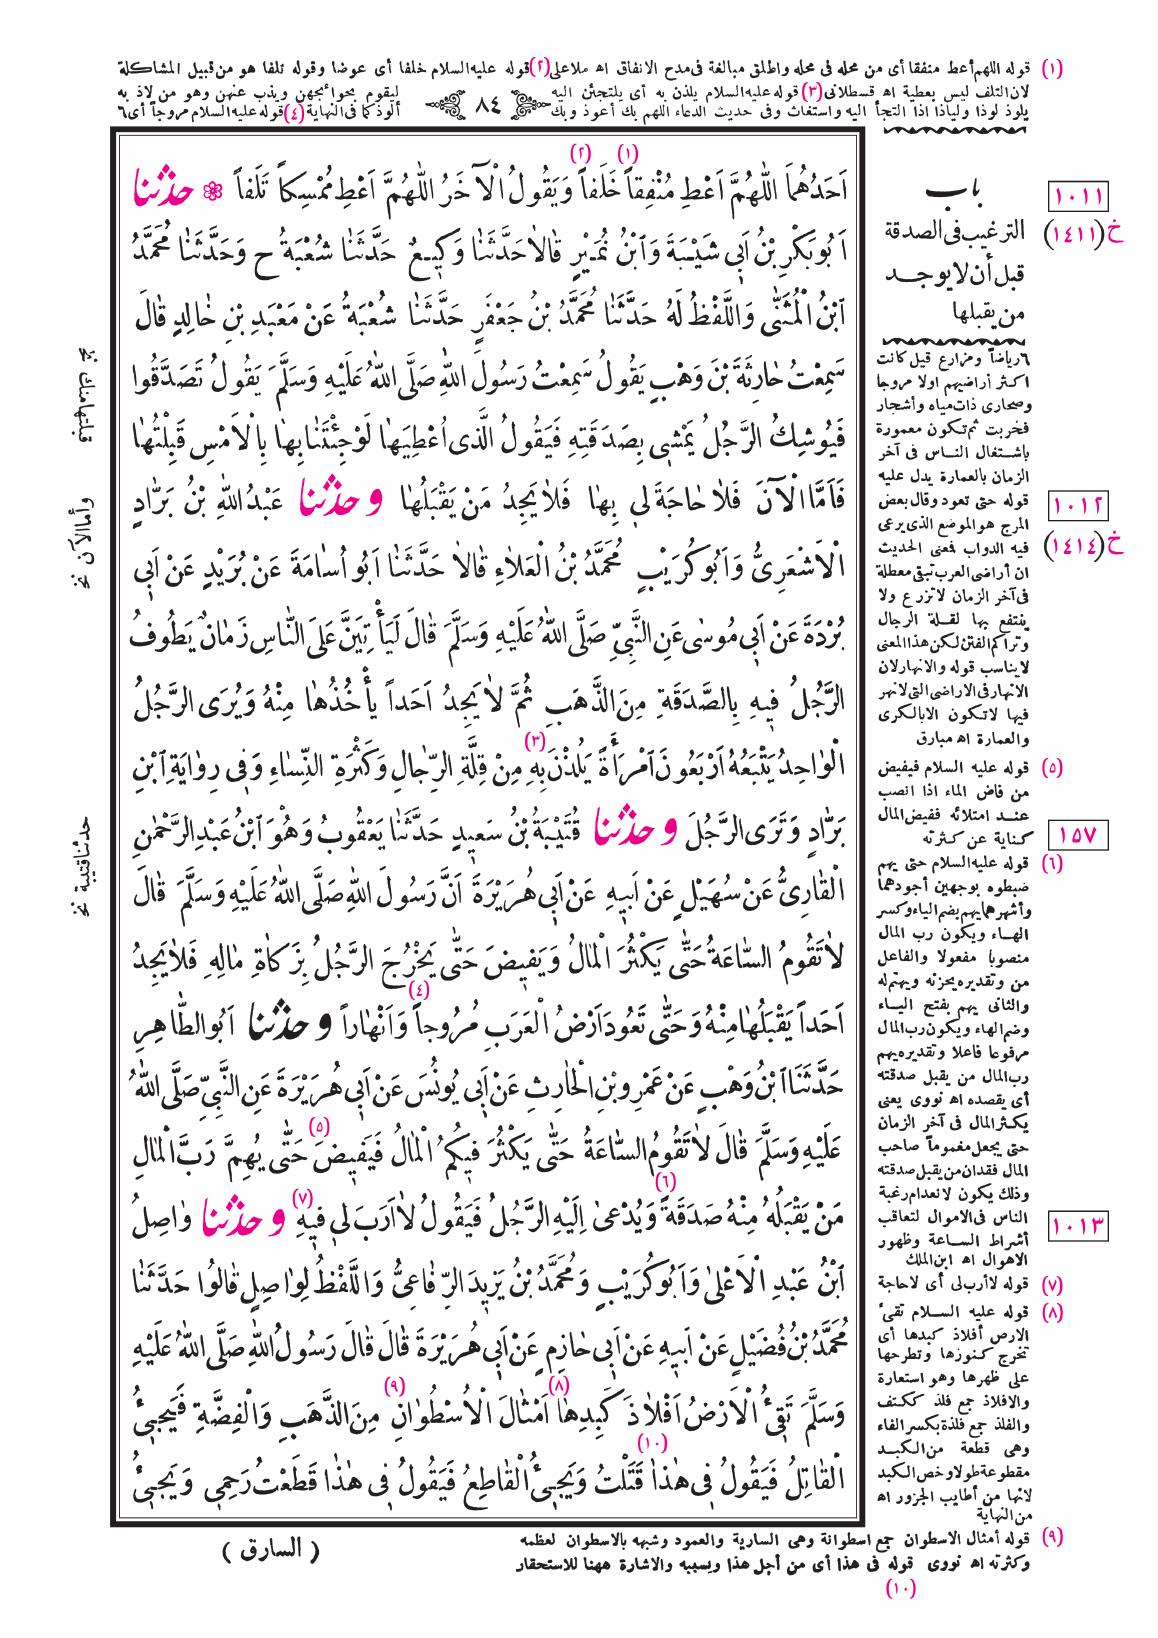 (١) قوله اللهم أعط منفقا أى من محله فى محله واطلق مبالغة فى مدح الانفاق اه ملاعلى (٢) قوله عليه السلام خلفا أى عوضا وقوله تلفا هو من قبيل المشاكلة
لان التلف ليس بعطية اه قسطلانى (٣) قوله عليه السلام يلذن به أى يلتجئن اليه
ليقوم بحوائجهن ويذب عنهن وهو من لاذ به
يلوذ لوذا ولياذا اذا التجأ اليه واستغاث وفى حديث الدعاء اللهم بك أعوذ وبك
ألوذ كما فى النهاية (٤) قوله عليه السلام مروجاً أى ٦
٨٤
اَحَدُهُمَا اللّٰهُمَّ اَعْطِ مُنْفِقاً (١) خَلَفاً (٢) وَيَقُولُ الْآخَرُ اللّٰهُمَّ اَعْطِ مُمْسِكاً تَلَفاً ❁ حدثنا
اَبُو بَكْرِ بْنُ اَبِي شَيْبَةَ وَابْنُ نُمَيْرٍ قَالاَ حَدَّثَنَا وَكِيعٌ حَدَّثَنَا شُعْبَةُ ح وَحَدَّثَنَا مُحَمَّدُ
ابْنُ الْمُثَنّٰى وَاللَّفْظُ لَهُ حَدَّثَنَا مُحَمَّدُ بْنُ جَعْفَرٍ حَدَّثَنَا شُعْبَةُ عَنْ مَعْبَدِ بْنِ خَالِدٍ قَالَ
سَمِعْتُ حَارِثَةَ بْنَ وَهْبٍ يَقُولُ سَمِعْتُ رَسُولَ اللّٰهِ صَلَّى اللّٰهُ عَلَيْهِ وَسَلَّمَ يَقُولُ تَصَدَّقُوا
فَيُوشِكُ الرَّجُلُ يَمْشِي بِصَدَقَتِهِ فَيَقُولُ الَّذِى اُعْطِيَهَا لَوْ جِئْتَنَا بِهَا بِالْاَمْسِ قَبِلْتُهَا
فَاَمَّا الْآنَ فَلاَ حَاجَةَ لِى بِهَا فَلاَ يَجِدُ مَنْ يَقْبَلُهَا وحدثنا عَبْدُ اللّٰهِ بْنُ بَرَّادٍ
الْاَشْعَرِىُّ وَاَبُو كُرَيْبٍ مُحَمَّدُ بْنُ الْعَلاَءِ قَالاَ حَدَّثَنَا اَبُو اُسَامَةَ عَنْ بُرَيْدٍ عَنْ اَبِى
بُرْدَةَ عَنْ اَبِى مُوسٰى عَنِ النَّبِيِّ صَلَّى اللّٰهُ عَلَيْهِ وَسَلَّمَ قَالَ لَيَأْتِيَنَّ عَلَى النَّاسِ زَمَانٌ يَطُوفُ
الرَّجُلُ فِيهِ بِالصَّدَقَةِ مِنَ الذَّهَبِ ثُمَّ لاَ يَجِدُ اَحَداً يَأْخُذُهَا مِنْهُ وَيُرَى الرَّجُلُ
الْوَاحِدُ يَتْبَعُهُ اَرْبَعُونَ امْرَأَةً يَلُذْنَ (٣) بِهِ مِنْ قِلَّةِ الرِّجَالِ وَكَثْرَةِ النِّسَاءِ وَفِى رِوَايَةِ ابْنِ
بَرَّادٍ وَتَرَى الرَّجُلَ وحدثنا قُتَيْبَةُ بْنُ سَعِيدٍ حَدَّثَنَا يَعْقُوبُ وَهُوَ ابْنُ عَبْدِ الرَّحْمٰنِ
الْقَارِىُّ عَنْ سُهَيْلٍ عَنْ اَبِيهِ عَنْ اَبِى هُرَيْرَةَ اَنَّ رَسُولَ اللّٰهِ صَلَّى اللّٰهُ عَلَيْهِ وَسَلَّمَ قَالَ
لاَ تَقُومُ السَّاعَةُ حَتّٰى يَكْثُرَ الْمَالُ وَيَفِيضَ حَتّٰى يَخْرُجَ الرَّجُلُ بِزَكَاةِ مَالِهِ فَلاَ يَجِدُ
اَحَداً يَقْبَلُهَا مِنْهُ وَحَتّٰى تَعُودَ اَرْضُ الْعَرَبِ مُرُوجاً (٤) وَاَنْهَاراً وحدثنا اَبُو الطَّاهِرِ
حَدَّثَنَا ابْنُ وَهْبٍ عَنْ عَمْرِو بْنِ الْحَارِثِ عَنْ اَبِى يُونُسَ عَنْ اَبِى هُرَيْرَةَ عَنِ النَّبِيِّ صَلَّى اللّٰهُ
عَلَيْهِ وَسَلَّمَ قَالَ لاَ تَقُومُ السَّاعَةُ حَتّٰى يَكْثُرَ فِيكُمُ الْمَالُ فَيَفِيضَ (٥) حَتّٰى يُهِمَّ رَبَّ الْمَالِ
مَنْ يَقْبَلُهُ مِنْهُ صَدَقَةً (٦) وَيُدْعٰى اِلَيْهِ الرَّجُلُ فَيَقُولُ لاَ اَرَبَ لِى فِيهِ (٧) وحدثنا وَاصِلُ
ابْنُ عَبْدِ الْاَعْلٰى وَاَبُو كُرَيْبٍ وَمُحَمَّدُ بْنُ يَزِيدَ الرِّفَاعِىُّ وَاللَّفْظُ لِوَاصِلٍ قَالُوا حَدَّثَنَا
مُحَمَّدُ بْنُ فُضَيْلٍ عَنْ اَبِيهِ عَنْ اَبِى حَازِمٍ عَنْ اَبِى هُرَيْرَةَ قَالَ قَالَ رَسُولُ اللّٰهِ صَلَّى اللّٰهُ عَلَيْهِ
وَسَلَّمَ تَقِىءُ الْاَرْضُ اَفْلاَذَ كَبِدِهَا (٨) اَمْثَالَ الْاُسْطُوَانِ (٩) مِنَ الذَّهَبِ وَالْفِضَّةِ فَيَجِىءُ
الْقَاتِلُ فَيَقُولُ فِى هٰذَا (١٠) قَتَلْتُ وَيَجِىءُ الْقَاطِعُ فَيَقُولُ فِى هٰذَا قَطَعْتُ رَحِمِى وَيَجِىءُ
باب
الترغيب فى الصدقة
قبل أن لا يوجد
من يقبلها
١٠١١
خ (١٤١١)
١٠١٢
خ (١٤١٤)
١٥٧
١٠١٣
٦ رياضاً ومزارع قيل كانت
اكثر أراضيهم اولا مروجا
وصحارى ذات مياه وأشجار
فخربت ثم تكون معمورة
باشتغال الناس فى آخر
الزمان بالعمارة يدل عليه
قوله حتى تعود وقال بعض
المرج هو الموضع الذى يرعى
فيه الدواب فمعنى الحديث
ان أراضى العرب تبقى معطلة
فى آخر الزمان لا تزرع ولا
ينتفع بها لقلة الرجال
وتراكم الفتن لكن هذا المعنى
لا يناسب قوله والانهار لان
الانهار فى الاراضى التى لا نهر
فيها لا تكون الا بالكرى
والعمارة اه مبارق
(٥) قوله عليه السلام فيفيض
من فاض الماء اذا انصب
عند امتلائه ففيض المال
كناية عن كثرته
(٦) قوله عليه السلام حتى يهم
ضبطوه بوجهين أجودهما
وأشهرهما يهم بضم الياء وكسر
الهاء ويكون رب المال
منصوبا مفعولا والفاعل
من وتقديره يحزنه ويهتم له
والثانى يهم بفتح الياء
وضم الهاء ويكون رب المال
مرفوعا فاعلا وتقديره يهم
رب المال من يقبل صدقته
أى يقصده اه نووى يعنى
يكثر المال فى آخر الزمان
حتى يجعل مغموماً صاحب
المال فقدان من يقبل صدقته
وذلك يكون لانعدام رغبة
الناس فى الاموال لتعاقب
أشراط الساعة وظهور
الاهوال اه ابن الملك
(٧) قوله لا أرب لى أى لا حاجة
(٨) قوله عليه السلام تقىء
الارض أفلاذ كبدها أى
تخرج كنوزها وتطرحها
على ظهرها وهو استعارة
والافلاذ جمع فلذ ككتف
والفلذ جمع فلذة بكسر الفاء
وهى قطعة من الكبد
مقطوعة طولا وخص الكبد
لانها من أطايب الجزور اه
من النهاية
(٩) قوله أمثال الاسطوان جمع اسطوانة وهى السارية والعمود وشبهه بالاسطوان لعظمه
وكثرته اه نووى قوله فى هذا أى من أجل هذا وبسببه والاشارة ههنا للاستحقار
(١٠)
( السارق )
قبلتها منك نخ
وأما الآن نخ
حدثنا قتيبة نخ